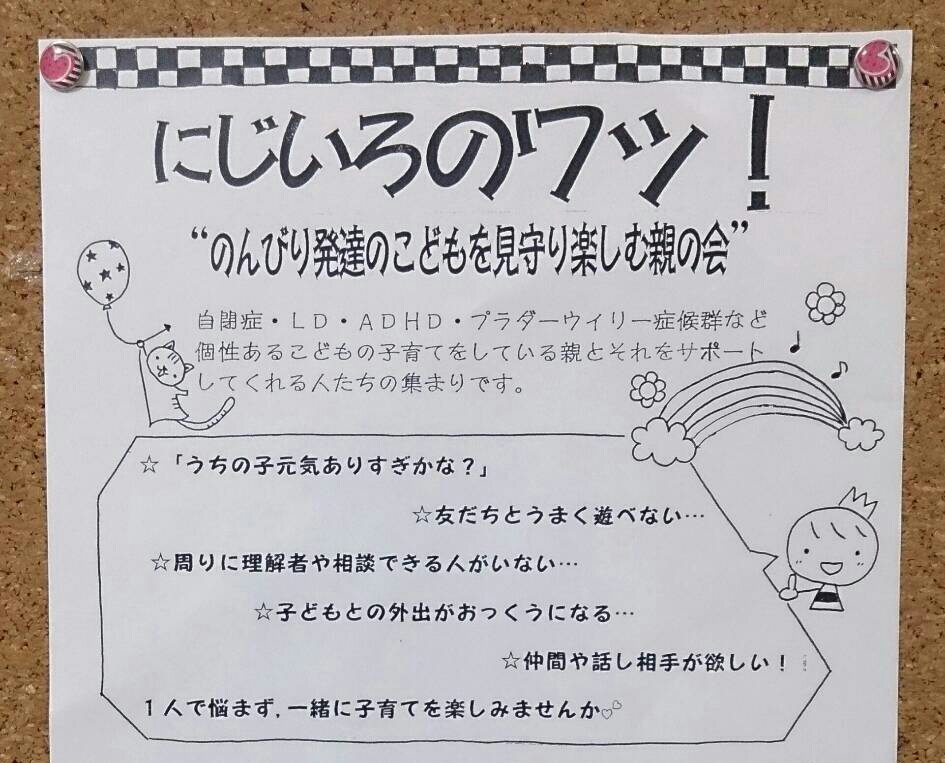 にじいろのワッ！
“のんびり発達のこどもを見守り楽しむ親の会”
自閉症・ＬＤ・ＡＤＨＤ・プラダーウィリー症候群など
個性あるこどもの子育てをしている親とそれをサポート
してくれる人たちの集まりです。
☆「うちの子元気ありすぎかな？」
☆友だちとうまく遊べない…
☆周りに理解者や相談できる人がいない…
☆子どもとの外出がおっくうになる…
☆仲間や話し相手が欲しい！
１人で悩まず,一緒に子育てを楽しみませんか♡